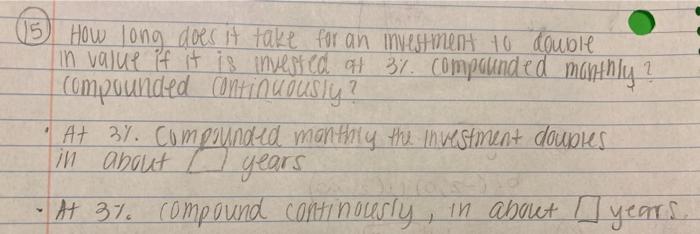 15) How long does it take for an investment to double
in value if it is invested at 3%. compounded monthly?
compounded continuously?
• At 3%. Compounded monthly the investment doubles
in about □ years
- At 3%. compound continously, in about □ years.